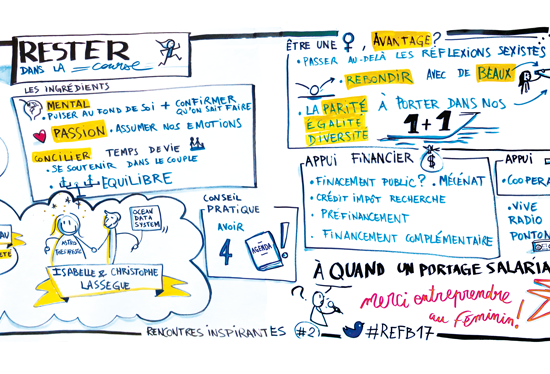 RESTER
DANS LA course
LES INGRÉDIENTS
MENTAL
• PUISER AU FOND DE SOI + CONFIRMER
QU'ON SAIT FAIRE
PASSION • ASSUMER NOS EMOTIONS
CONCILIER TEMPS DE VIE
• SE SOUTENIR DANS LE COUPLE
• EQUILIBRE
OCEAN
DATA
SYSTEM
ISABELLE & CHRISTOPHE
LASSEGUE
CONSEIL
PRATIQUE
AVOIR
4
AGENDA
!
RENCONTRES INSPIRANTES #2
ÊTRE UNE ♀, AVANTAGE?
• PASSER AU-DELÀ LES RÉFLEXIONS SEXISTES
• REBONDIR AVEC DE BEAUX
• LA PARITÉ
ÉGALITÉ
DIVERSITÉ
À PORTER DANS NOS
1+1
APPUI FINANCIER
$
• FINACEMENT PUBLIC? • MÉCÉNAT
• CRÉDIT IMPÔT RECHERCHE
• PRÉFINANCEMENT
• FINANCEMENT COMPLÉMENTAIRE
APPUI
• COOPERA
• VIVE
RADIO
PONTON
À QUAND UN PORTAGE SALARIA
?
merci entreprendre
au féminin!
#REFB17